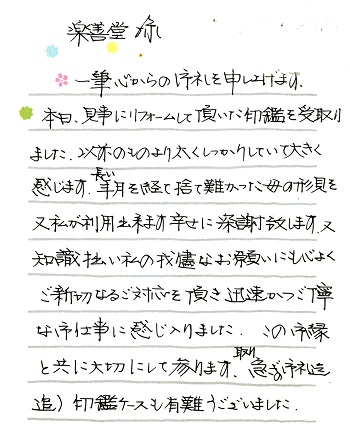 楽善堂 様
一筆心からの御礼を申し上げます。
本日、見事にリフォームして頂いた印鑑を受取り
ました。以来のものより太くしっかりしていて大きく
感じます。長い年月を経て捨て難かった母の形見を
又私が利用出来ます幸せに深謝致します。又
知識拙い私の我儘なお願いにも心よく
ご親切なるご対応を頂き迅速かつご丁寧
な御仕事に感じ入りました。この御縁
と共に大切にして参ります。取り急ぎ御礼迄
追)印鑑ケースも有難うございました。